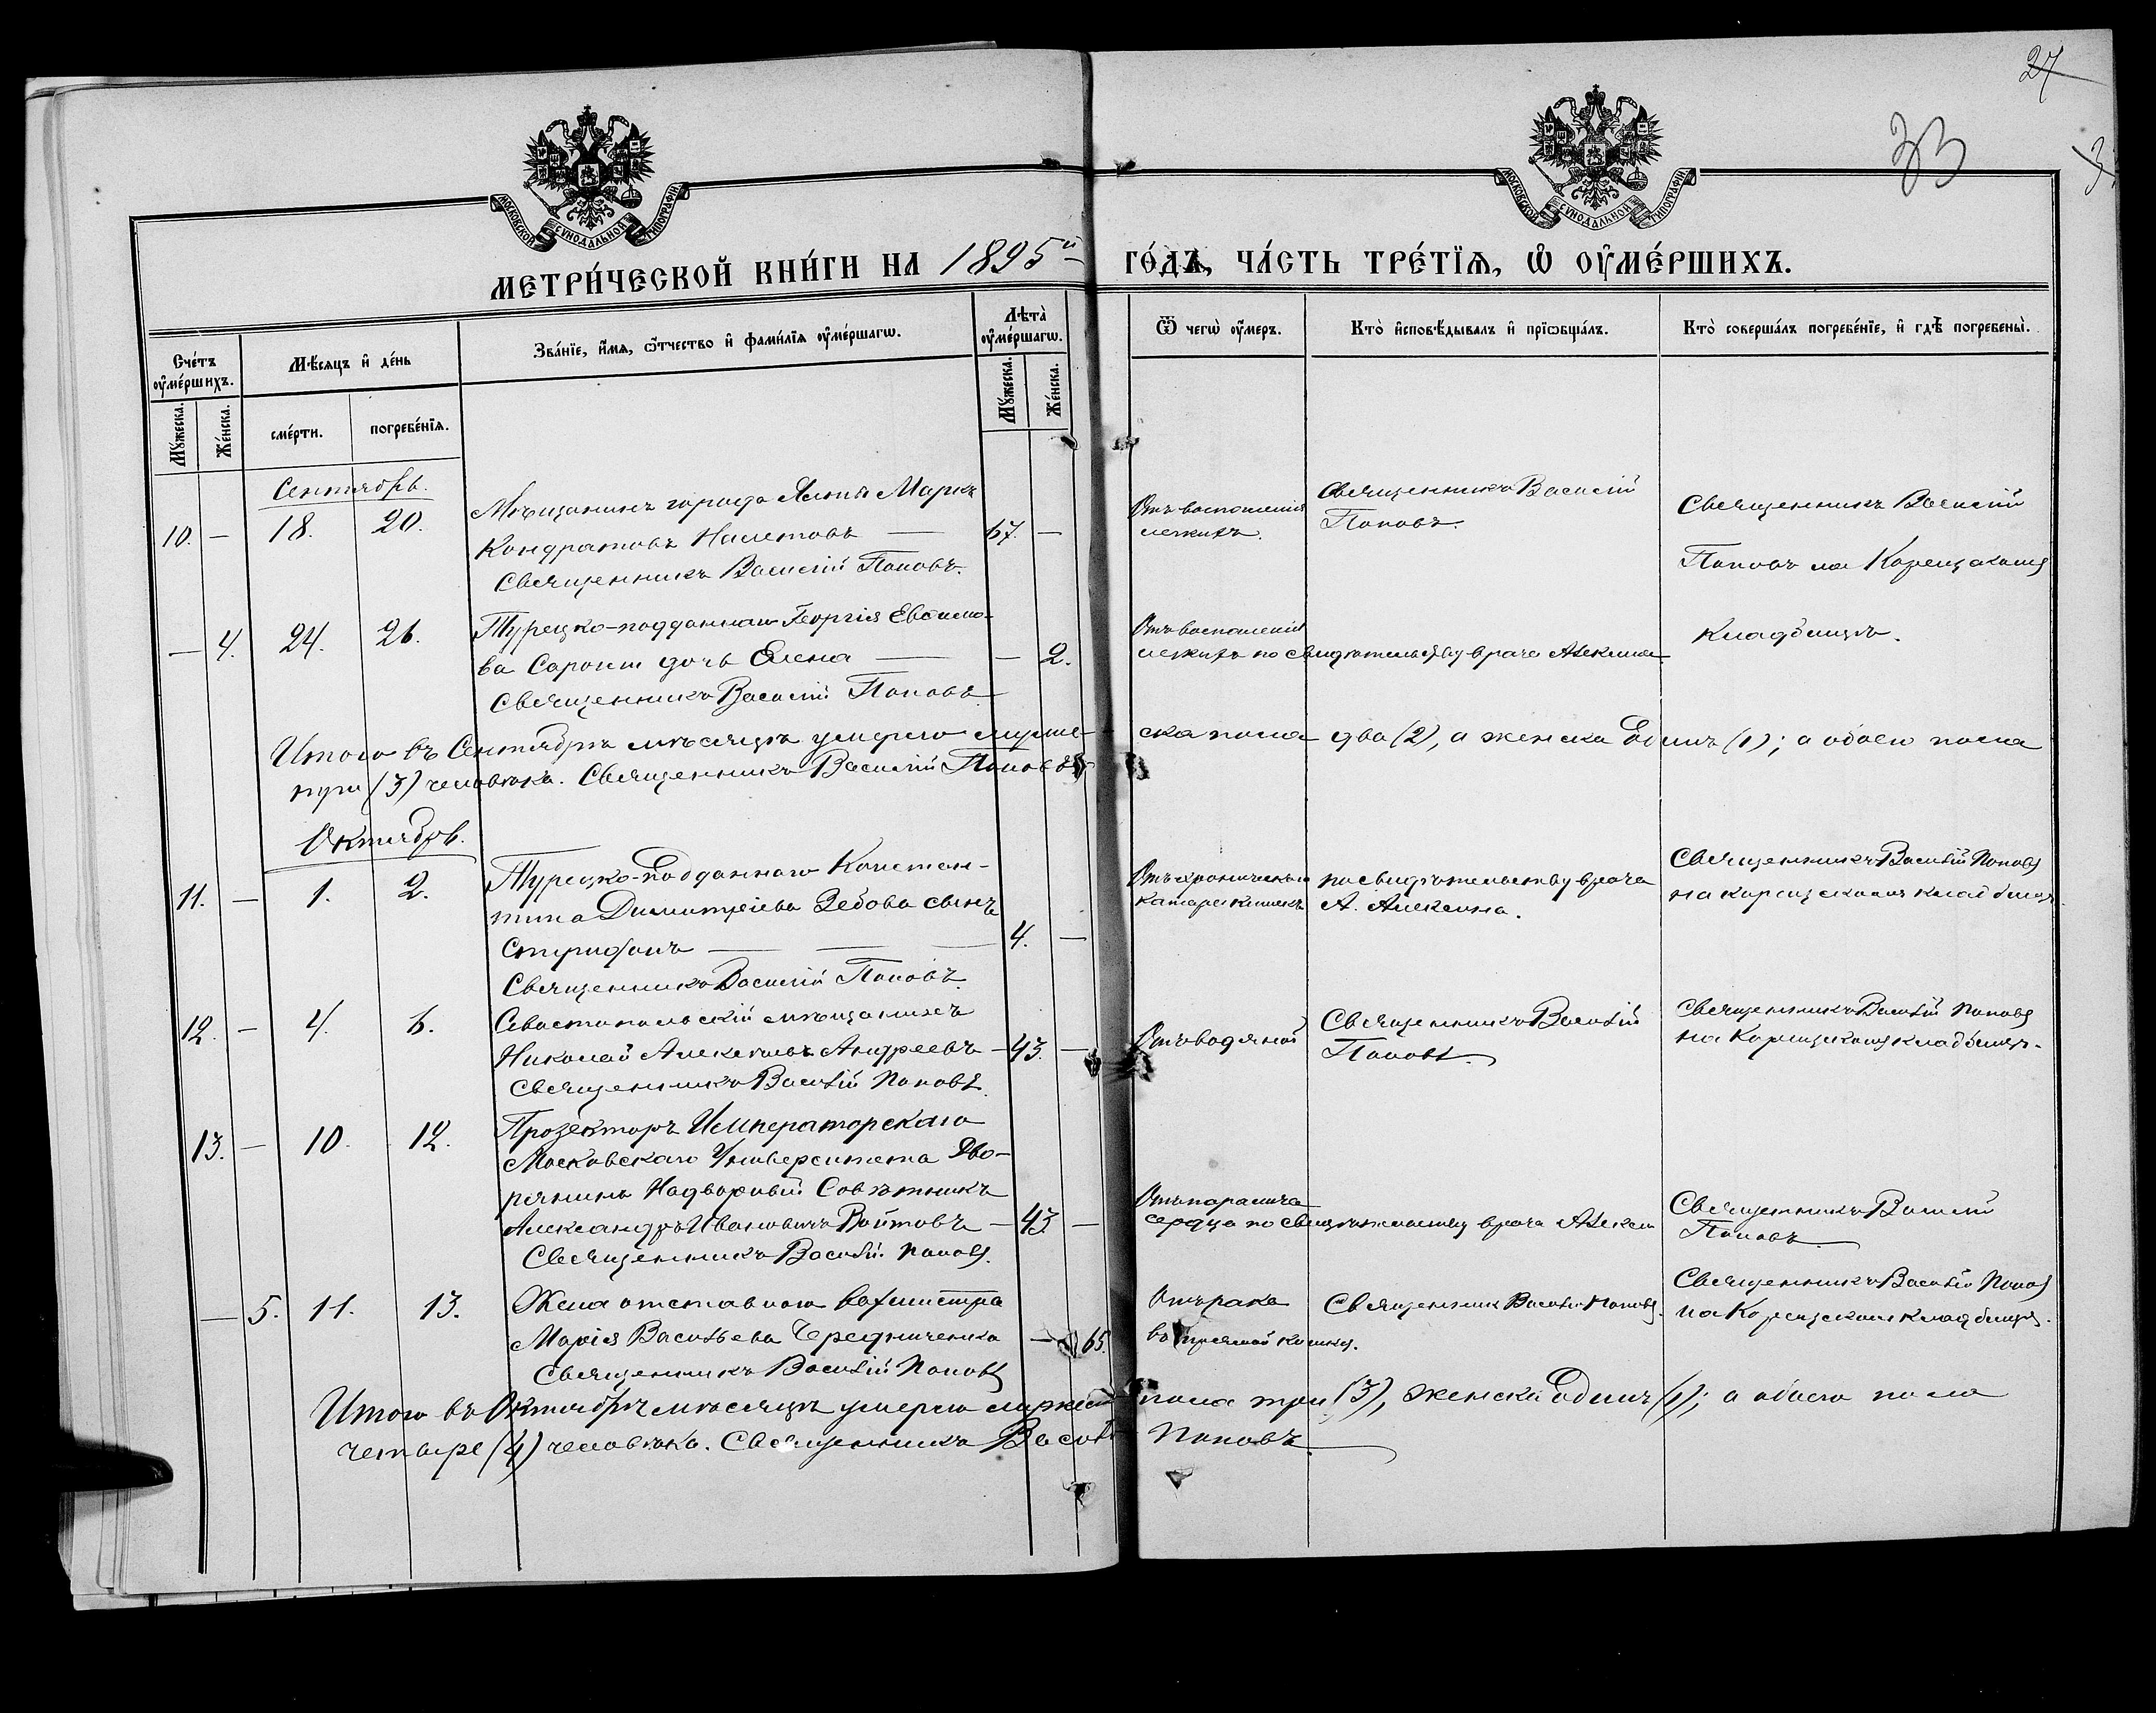 27
33
МОСКОВСКОЙ СУНОДАЛЬНОЙ ТИПОГРАФІИ
МОСКОВСКОЙ СУНОДАЛЬНОЙ ТИПОГРАФІИ
МЕТРИ́ЧЕСКОЙ КНИ́ГИ НА 1895й ГО́ДЪ, ЧА́СТЬ ТРЕ́ТЇѦ, Ѡ҆ ОУ҆МЕ́РШИХЪ.
Сче́тъ оу҆ме́ршихъ.
Мꙋ́жеска.
Же́нска.
Мѣ́сѧцъ и҆ де́нь
сме́рти.
погребе́нїѧ.
Зва́нїе, и҆́мѧ, ѻ҆́тчество и҆ фами́лїѧ оу҆ме́ршагѡ.
Лѣта̀ оу҆ме́ршагѡ.
Мꙋ́жеска.
Же́нска.
Ѿ чегѡ̀ оу҆́меръ.
Кто̀ и҆сповѣ́дывалъ и҆ прїѡбща́лъ.
Кто̀ соверша́лъ погребе́нїе, и҆ гдѣ̀ погребены̀.
Сентябрь.
10. — 18. 20.
Мѣщанинъ города Ялты Маркъ
Кондратовъ Налетовъ — 67. —
Священникъ Василій Поповъ.
Отъ воспаленія
легкихъ.
Священникъ Василій
Поповъ.
Священникъ Василій
Поповъ на
— 4. 24. 26.
Турецко-подданнаго Георгія
ва дочь Елена — — 2.
Священникъ Василій Поповъ
Отъ воспаленія
легкихъ по свидѣтельству врача
Кладбищѣ.
Итого въ Сентябрѣ мѣсяцѣ умерло муже-
ска пола два (2), а женска Одинъ (1); а обоего пола
три (3) человѣка. Священникъ Василій Поповъ
Октябрь.
11. — 1. 2.
Турецко-Подданнаго Констан-
тина Димитріева Зебова сынъ
— 4. —
Священникъ Василій Поповъ.
Отъ хроническаго
катара кишекъ
по свидѣтельству врача
А. Алексина.
Священникъ Василій Поповъ
на кладбищѣ
12. — 4. 6.
Севастопольскій мѣщанинъ
Николай Алексѣевъ Андреевъ — 43. —
Священникъ Василій Поповъ.
Отъ водяной
Священникъ Василій
Поповъ
Священникъ Василій Поповъ
на кладбищѣ.
13. — 10. 12.
Прозекторъ Императорскаго
Московскаго Университета Дво-
рянинъ Надворный Совѣтникъ
Александръ Ивановичъ Войтовъ — 43. —
Священникъ Василій Поповъ.
Отъ паралича
сердца по свидѣтельству врача
Священникъ Василій
Поповъ
— 5. 11. 13.
Жена отставного вахмистра
Марія Васильева Чередниченко — 65.
Священникъ Василій Поповъ
Отъ рака
въ прямой кишкѣ.
Священникъ Василій Поповъ.
Священникъ Василій Поповъ
на кладбищѣ.
Итого въ Октябрѣ мѣсяцѣ умерло мужеска пола три (3), женска Одинъ (1); а обоего пола
четыре (4) человѣка. Священникъ Василій Поповъ.